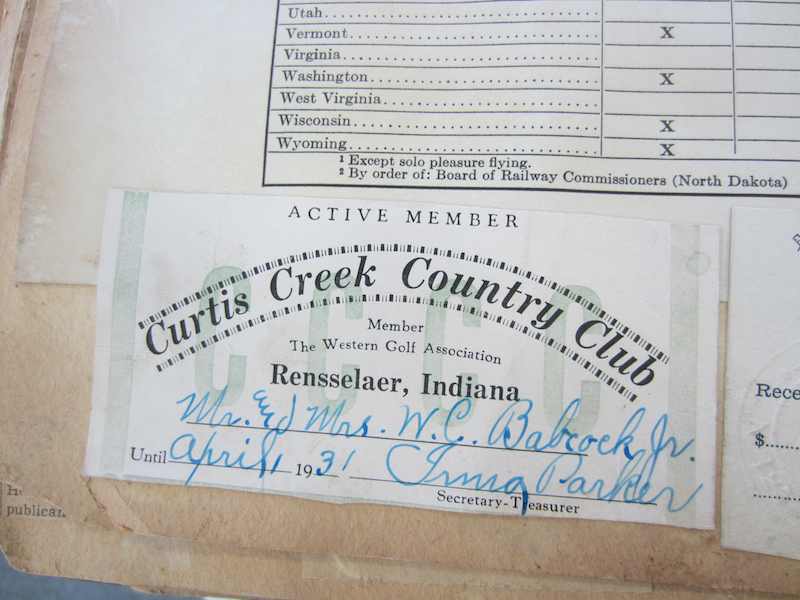 Utah
Vermont X
Virginia
Washington X
West Virginia
Wisconsin X
Wyoming X
1 Except solo pleasure flying.
2 By order of: Board of Railway Commissioners (North Dakota)
ACTIVE MEMBER
Curtis Creek Country Club
Member
The Western Golf Association
Rensselaer, Indiana
CCCC
Mr. and Mrs. W. C. Babcock Jr.
Until April 1 1931 Irma Parker
Secretary-Treasurer
Rece
$
publica